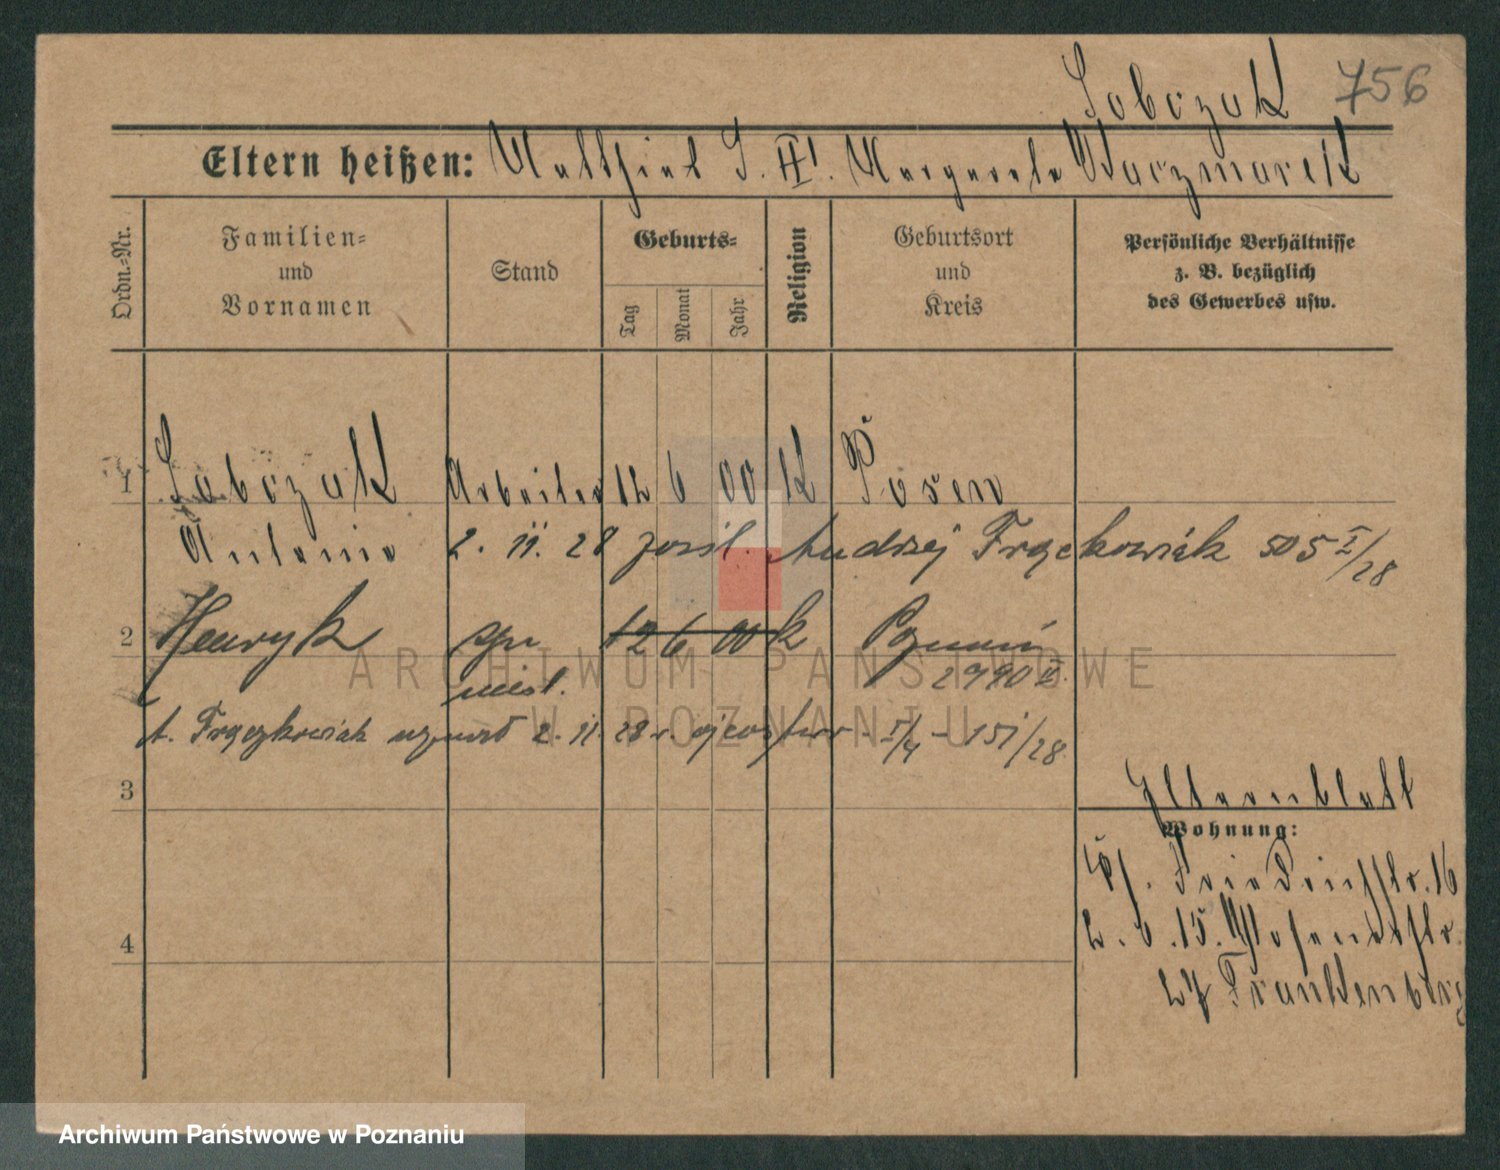 Sobczak 756
Eltern heißen: Matthias S. II. Margarete Kaczmarek
Ordn.-Nr.
Familien-
und
Vornamen
Stand
Geburts-
Tag
Monat
Jahr
Religion
Geburtsort
und
Kreis
Persönliche Verhältnisse
z. B. bezüglich
des Gewerbes usw.
1 Sobczak Arbeiter 12 6 00 K Posen
2. 11. 28 Andrzej Frąckowiak 505 I/28
2 Henryk 12 6 00 k Poznań
2990 II
A. Frąckowiak uznał 2. 11. 28 r. ojcostwo - I/4 - 151/28
3
Elternblatt
Wohnung:
Friedrichstr. 16
2. 6. 15.
27 Frankenberg
4
ARCHIWUM PAŃSTWOWE
W POZNANIU
Archiwum Państwowe w Poznaniu